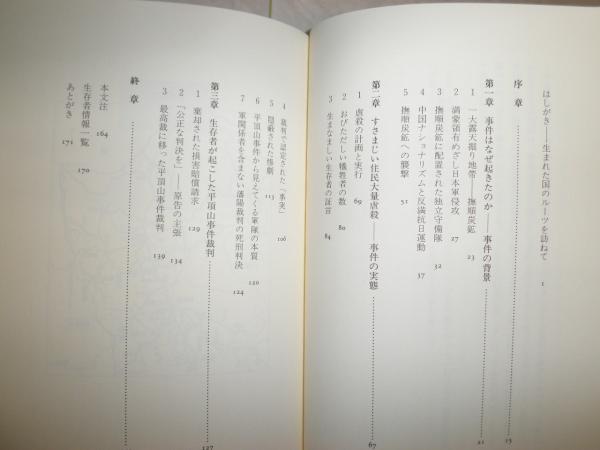 はしがき──生まれた国のルーツを訪ねて 1
序章 13
第一章 事件はなぜ起きたのか──事件の背景 21
1 一大露天掘り地帯──撫順炭鉱 23
2 満蒙領有めざし日本軍侵攻 27
3 撫順炭鉱に配置された独立守備隊 32
4 中国ナショナリズムと反満抗日運動 37
5 撫順炭鉱への襲撃 51
第二章 すさまじい住民大量虐殺──事件の実態 67
1 虐殺の計画と実行 69
2 おびただしい犠牲者の数 80
3 生まなましい生存者の証言 84
4 裁判で認定された「事実」 106
5 隠蔽された惨劇 113
6 平頂山事件から見えてくる軍隊の本質 120
7 軍関係者を含まない瀋陽裁判の死刑判決 124
第三章 生存者が起こした平頂山事件裁判 127
1 棄却された損害賠償請求 129
2 「公正な判決を」──原告の主張 134
3 最高裁に移った平頂山事件裁判 139
終章
本文注 164
生存者情報一覧 170
あとがき 171